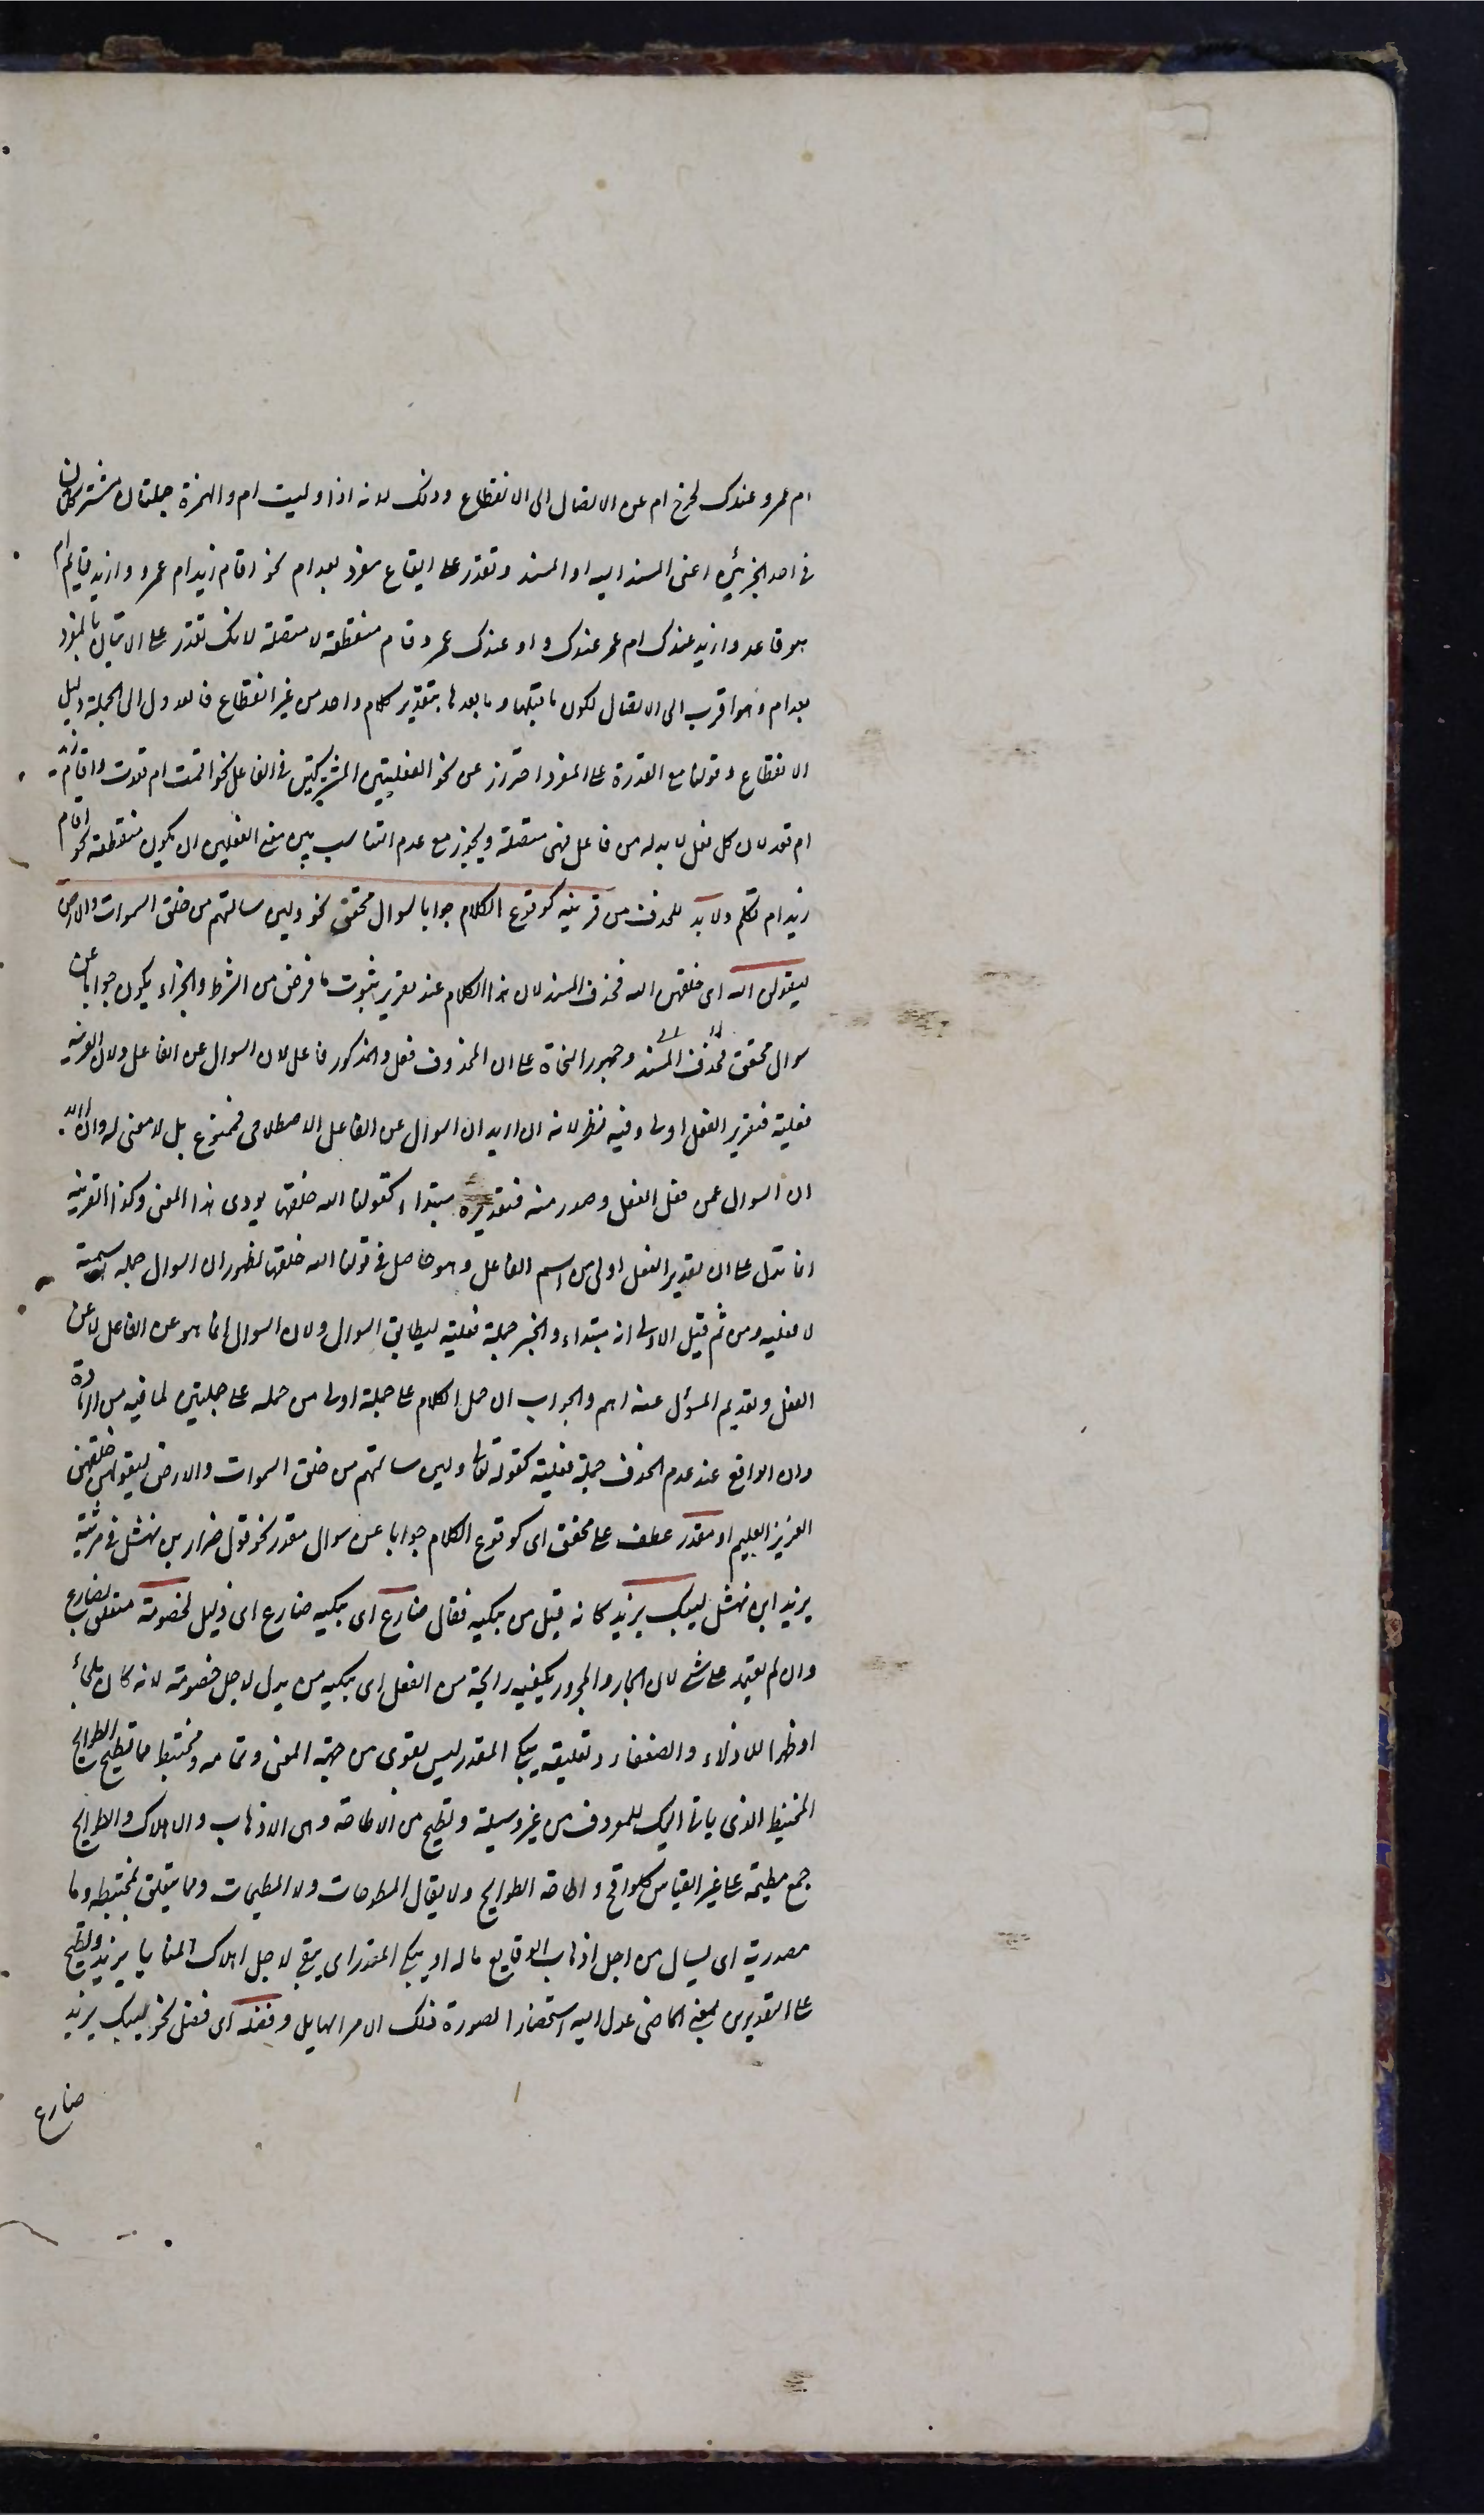 ام عمرو عندك لخرج ام عن الاتصال الى الانقطاع وذلك لانه اذا وليت ام والهمزة جملتان مشتركتان
فى احد الجزئين اعنى المسند اليه او المسند وتقدر على ايقاع مفرد بعد ام نحو اقام زيد ام عمرو وازيد قايم ام
هو قاعد وازيد عندك ام عمرو عندك و او عندك عمرو فام منقطعة لا متصلة لانك تقدر على الاتيان بالمفرد
بعد ام وهو اقرب الى الاتصال لكون ما قبلها وما بعدها بتقدير كلام واحد من غير انقطاع فالعدول الى الجملة دليل
الانقطاع وقولنا مع القدرة على المفرد احتراز عن نحو الفعليتين المشتركتين فى الفاعل نحو اقمت ام قعدت واقام زيد
ام قعد لان كل فعل لا بد له من فاعل فهى متصلة ويجوز مع عدم التناسب بين معنى الفعلين ان يكون منقطعة نحو اقام
زيد ام تكلم ولا بد للحذف من قرينه كوقوع الكلام جوابا لسوال محقق نحو ولين سالتهم من خلق السموات والارض
ليقولن الله اى خلقهن الله فحذف المسند لان هذا الكلام عند تقرير ثبوت ما فرض من الشرط والجزاء يكون جوابا عن
سوال محقق فحذف المسند وجمهور النحاة على ان المحذوف فعل والمذكور فاعل لان السوال عن الفاعل ولان القرينه
فعلية فتقدير الفعل اولى وفيه نظر لانه ان اريد ان السوال عن الفاعل الاصطلاحى فممنوع بل لا معنى له وان اريد
ان السوال عمن فعل الفعل وصدر منه فتقديره مبتداء كقولنا الله خلقها يودى هذا المعنى وكذا القرينه
انما تدل على ان تقدير الفعل اولى من اسم الفاعل وهو حاصل فى قولنا الله خلقها لظهور ان السوال جمله اسمية
لا فعليه ومن ثم قيل الاولى انه مبتداء والخبر جملة فعلية ليطابق السوال ولان السوال انما هو عن الفاعل لا عن
الفعل وتقديم المسؤل عنه اهم والجواب ان حمل الكلام على جملة اولى من حمله على جملتين لما فيه من الزيادة
وان الواقع عند عدم الحذف جملة فعلية كقوله تعالى ولين سالتهم من خلق السموات والارض ليقولن خلقهن
العزيز العليم او مقدر عطف على محقق اى كوقوع الكلام جوابا عن سوال مقدر نحو قول ضرار بن نهشل فى مرثية
يزيد ابن نهشل ليبك يزيد كانه قيل من يبكيه فقال ضارع اى يبكيه ضارع اى ذليل لخصومة متعلق بضارع
وان لم يعتمد على شى لان الجار والمجرور يكفيه رايحة من الفعل اى يبكيه من يذل لاجل خصومة لانه كان ملجأ
او ظهرا للاذلاء والضعفاء وتعليقه بيبكى المقدر ليس بقوى من جهة المعنى وتمامه ومختبط مما تطيح الطوايح
المختبط الذى ياتى اليك للمعروف من غير وسيلة وتطيح من الاطاحة وهى الاذهاب والاهلاك والطوايح
جمع مطيحة على غير القياس كلواقح و اطاحه الطوايح ولا يقال المطوحات ولا المطيحات ومما يتعلق بمختبط وما
مصدرية اى يسال من اجل اذهاب الوقايع ماله او بيبكى المقدر اى يبكى لاجل اهلاك المنايا يزيد وتطيح
على التقديرين بمعنى الماضى عدل اليه استحضارا لصورة ذلك الامر الهايل وفضله اى فضل نحو ليبك يزيد
ضارع